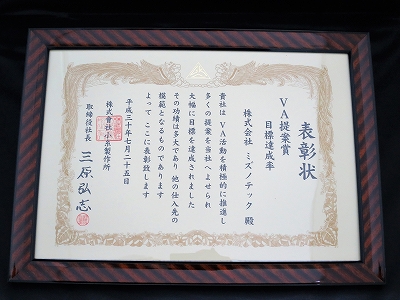 表彰状
VA提案賞
目標達成率
株式会社 ミズノテック 殿
貴社は VA活動を積極的に推進し
多くの提案を当社へよせられ
大幅に目標を達成されました
その功績は多大であり 他の仕入先の
模範となるものであります
よって ここに表彰致します
平成三十年七月二十五日
株式會社小糸製作所
取締役社長 三原弘志